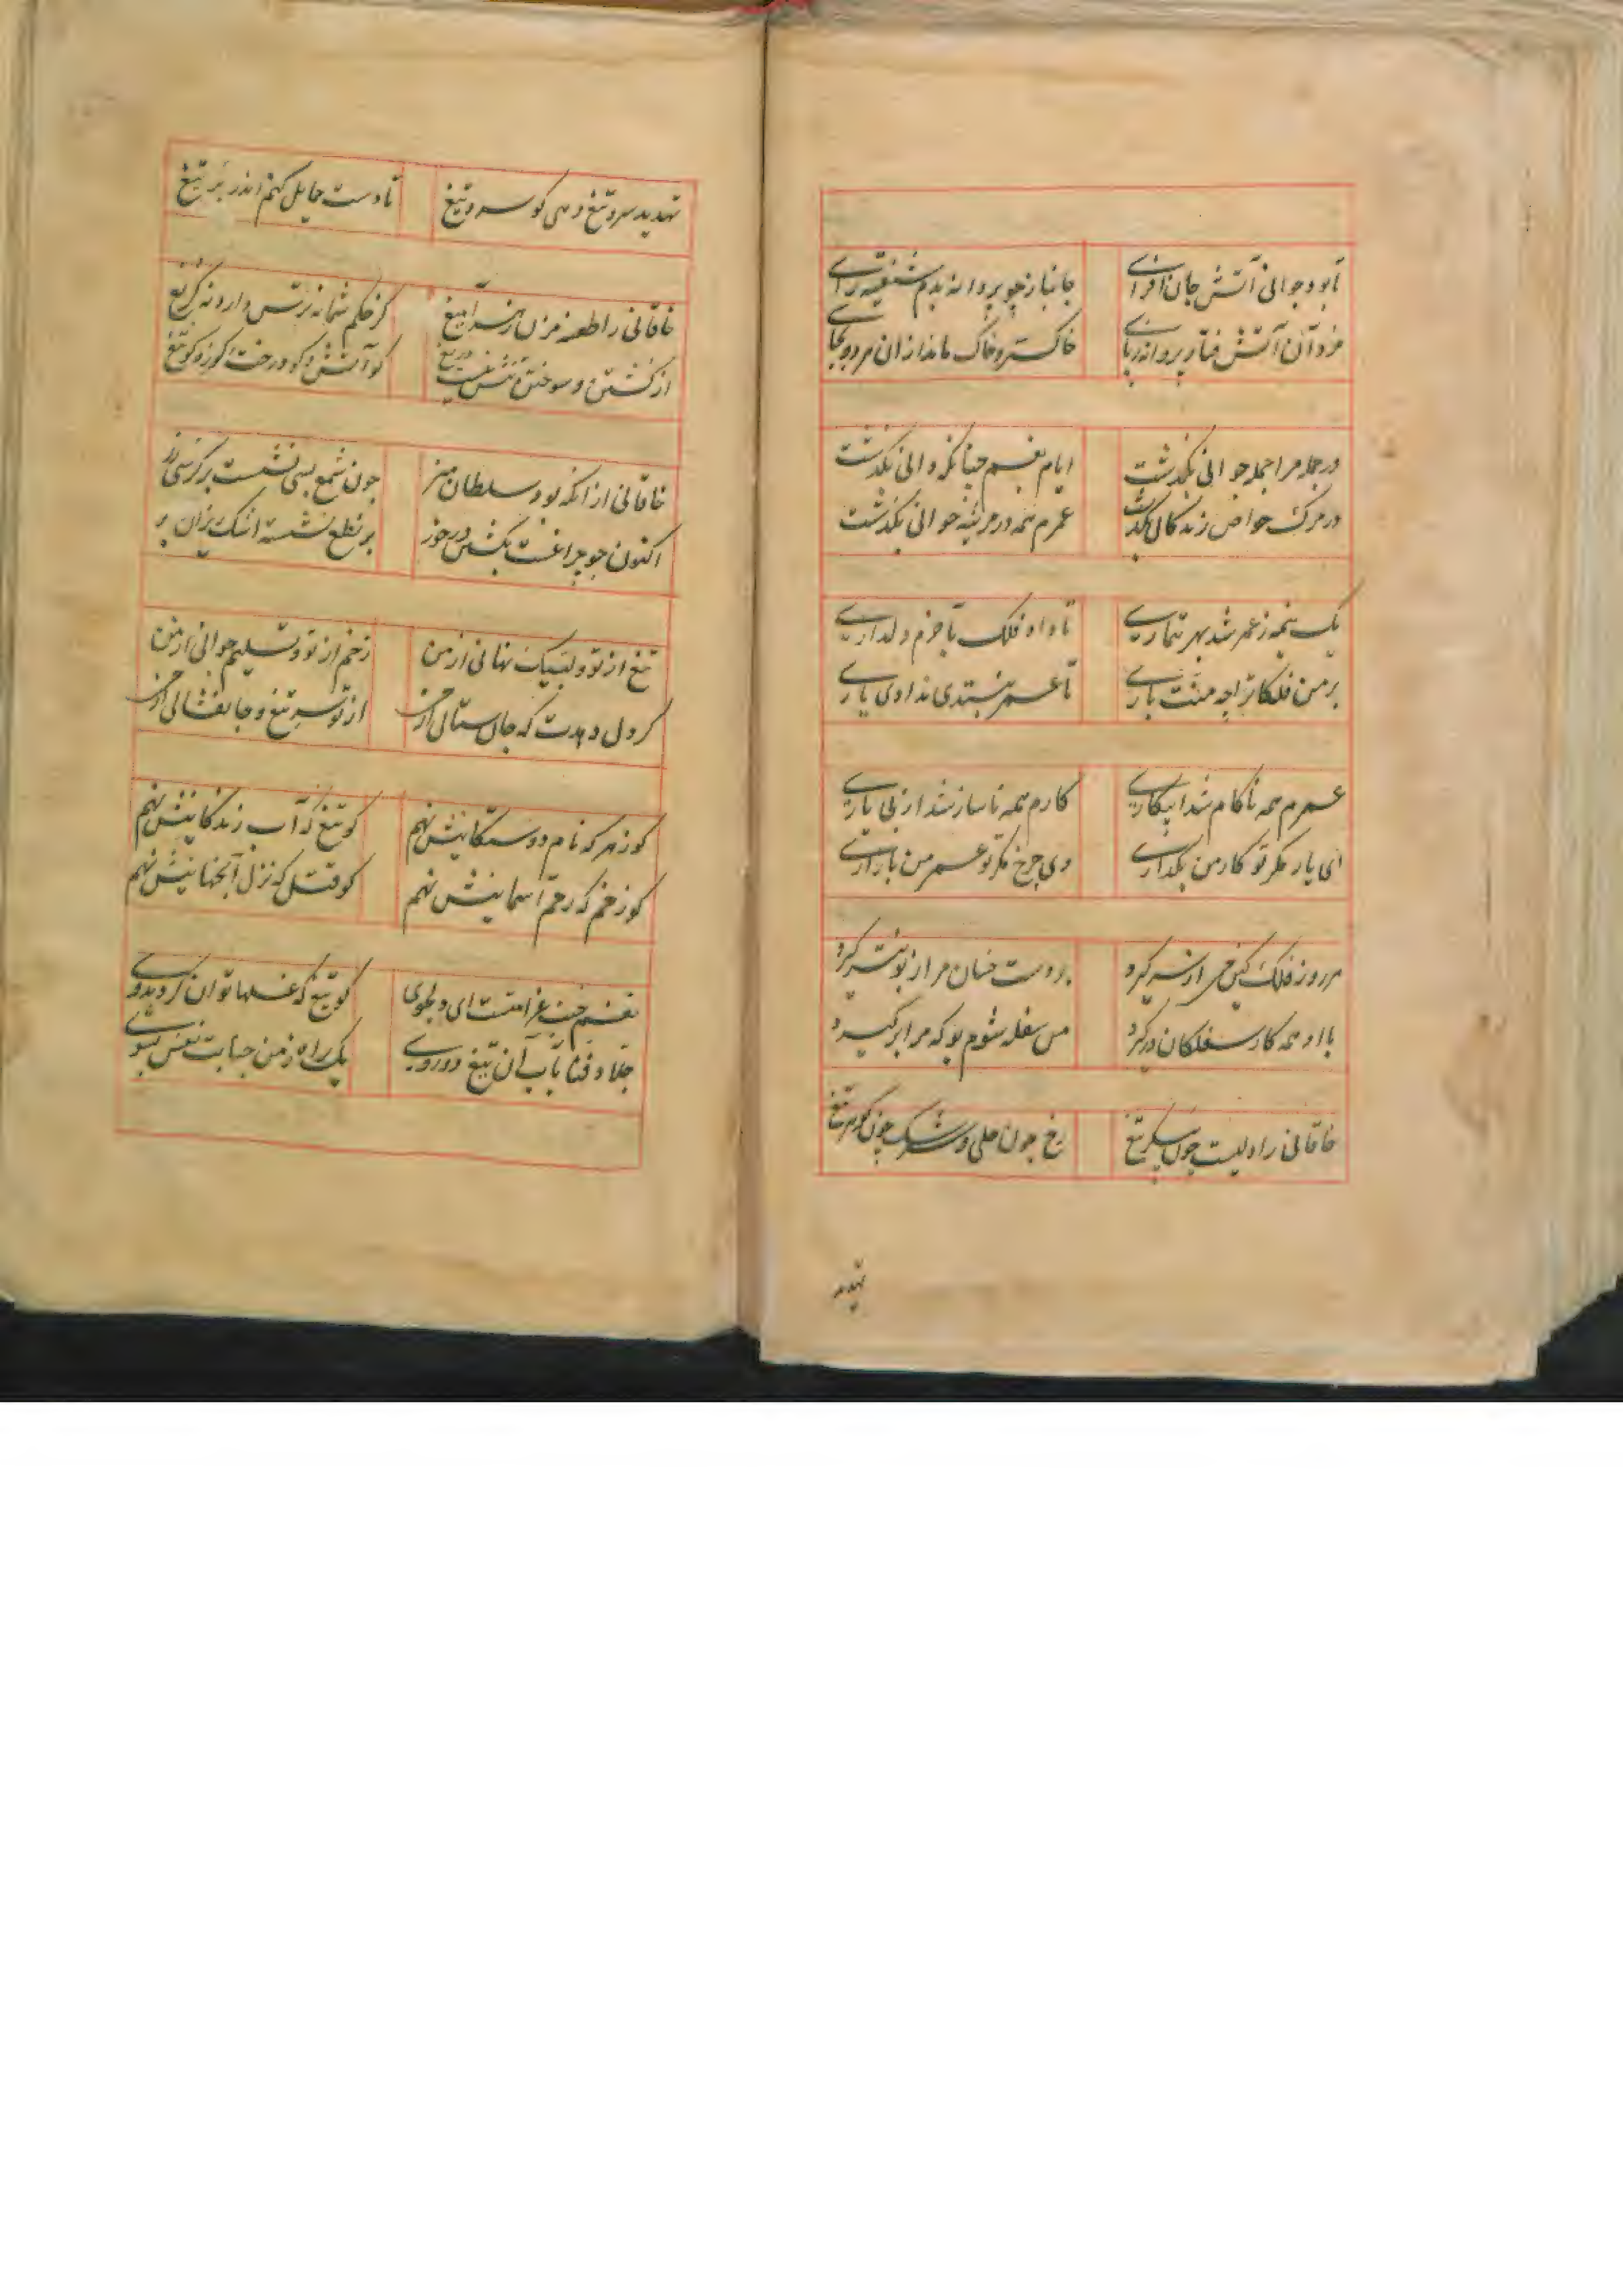 تا بود جوانی آتش جان افزای جانباز چو پروانه بدم شیفته رای
مرد آن آتش فتاد پروانه ز پای خاکستر و خاک ماند ازان هر دو بجای
در جمله مرا جمله جوانی بگذشت ایام بغم چنانکه دانی بگذشت
در مرک خواص زندکانی بگذشت عمرم همه در مرثیه خوانی بگذشت
یک نیمه ز عمر شد بهر تیماری تا داد فلک بآخرم دلداری
بر من فلکا ترا چه منت باری تا عمر نبستدی ندادی یاری
عمرم همه ناکام شد از بیکاری کارم همه ناساز شد از بی یاری
ای یار مکر تو کار من بکذاری وی چرخ مکر تو عمر من باز آری
هر روز فلک کین من از سر کیرد بر دست خسان مرا زبونتر کیرد
با او همه کار سفلکان درکیرد من سفله شوم بو که مرا برکیرد
خاقانی را دلیست چون پیکر تیغ رخ چون حلی و سرشک چون کوهر تیغ
تهدید
تهدید سر و تیغ دهی کو سر و تیغ تا دست حمایل کنم اندر بر تیغ
خاقانی را طعنه مزن زهر آمیغ کز حکم شما نه ترس دارد نه کریغ
از کشتن و سوختن تنش نیست دریغ کو آتش و کو درخت کو زه کو تیغ
خاقانی از آنکه بود سلطان هنر چون شمع بسی نشست بر کرسی زر
اکنون چو چراغست بکشتن در خور بر نطع نشسته اشک ریزان بر
تیغ از تو و لبیک نهانی از من زخم از تو و تسلیم جوانی از من
کر دل دهدت که جان ستانی از من از تو سر تیغ و جانفشانی از من
کو زهر که نام دوستکانیش نهم کو تیغ که آب زندکانیش نهم
کو زخم که رحم آسمانیش نهم کو قتل که نزل آنجهانیش نهم
نفسم جنب غرامتست ای دلجوی کو تیغ که غسلها توان کرد بدوی
جلاد فنا باب آن تیغ دوروی یک راه ز من جنابت نفس بشوی